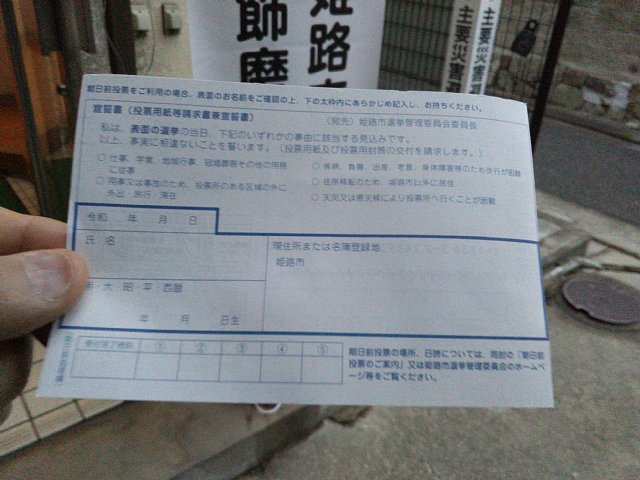 飾磨
姫路
主要災害
主要災害
期日前投票をご利用の場合、表面のお名前をご確認の上、下の太枠内にあらかじめ記入し、お持ちください。
宣誓書(投票用紙等請求書兼宣誓書)
(宛先)姫路市選挙管理委員会委員長
私は、表面の選挙の当日、下記のいずれかの事由に該当する見込みです。
以上、事実に相違ないことを誓います。(投票用紙及び投票用封筒の交付を請求します。)
○ 仕事、学業、地域行事、冠婚葬祭その他の用務に従事
○ 用事又は事故のため、投票所のある区域の外に外出・旅行・滞在
○ 疾病、負傷、出産、老衰、身体障害等のため歩行が困難
○ 住所移転のため、姫路市以外に居住
○ 天災又は悪天候により投票所へ行くことが困難
令和 年 月 日
氏 名
現住所または名簿登録地
姫路市
明・大・昭・平・西暦
年 月 日生
① ② ③ ④ ⑤
期日前投票の場所、日時については、同封の『期日前
投票のご案内』又は姫路市選挙管理委員会のホームペ
ージ等をご覧ください。